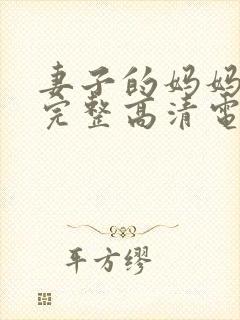 妻子的妈妈
完整高清电
平方缪